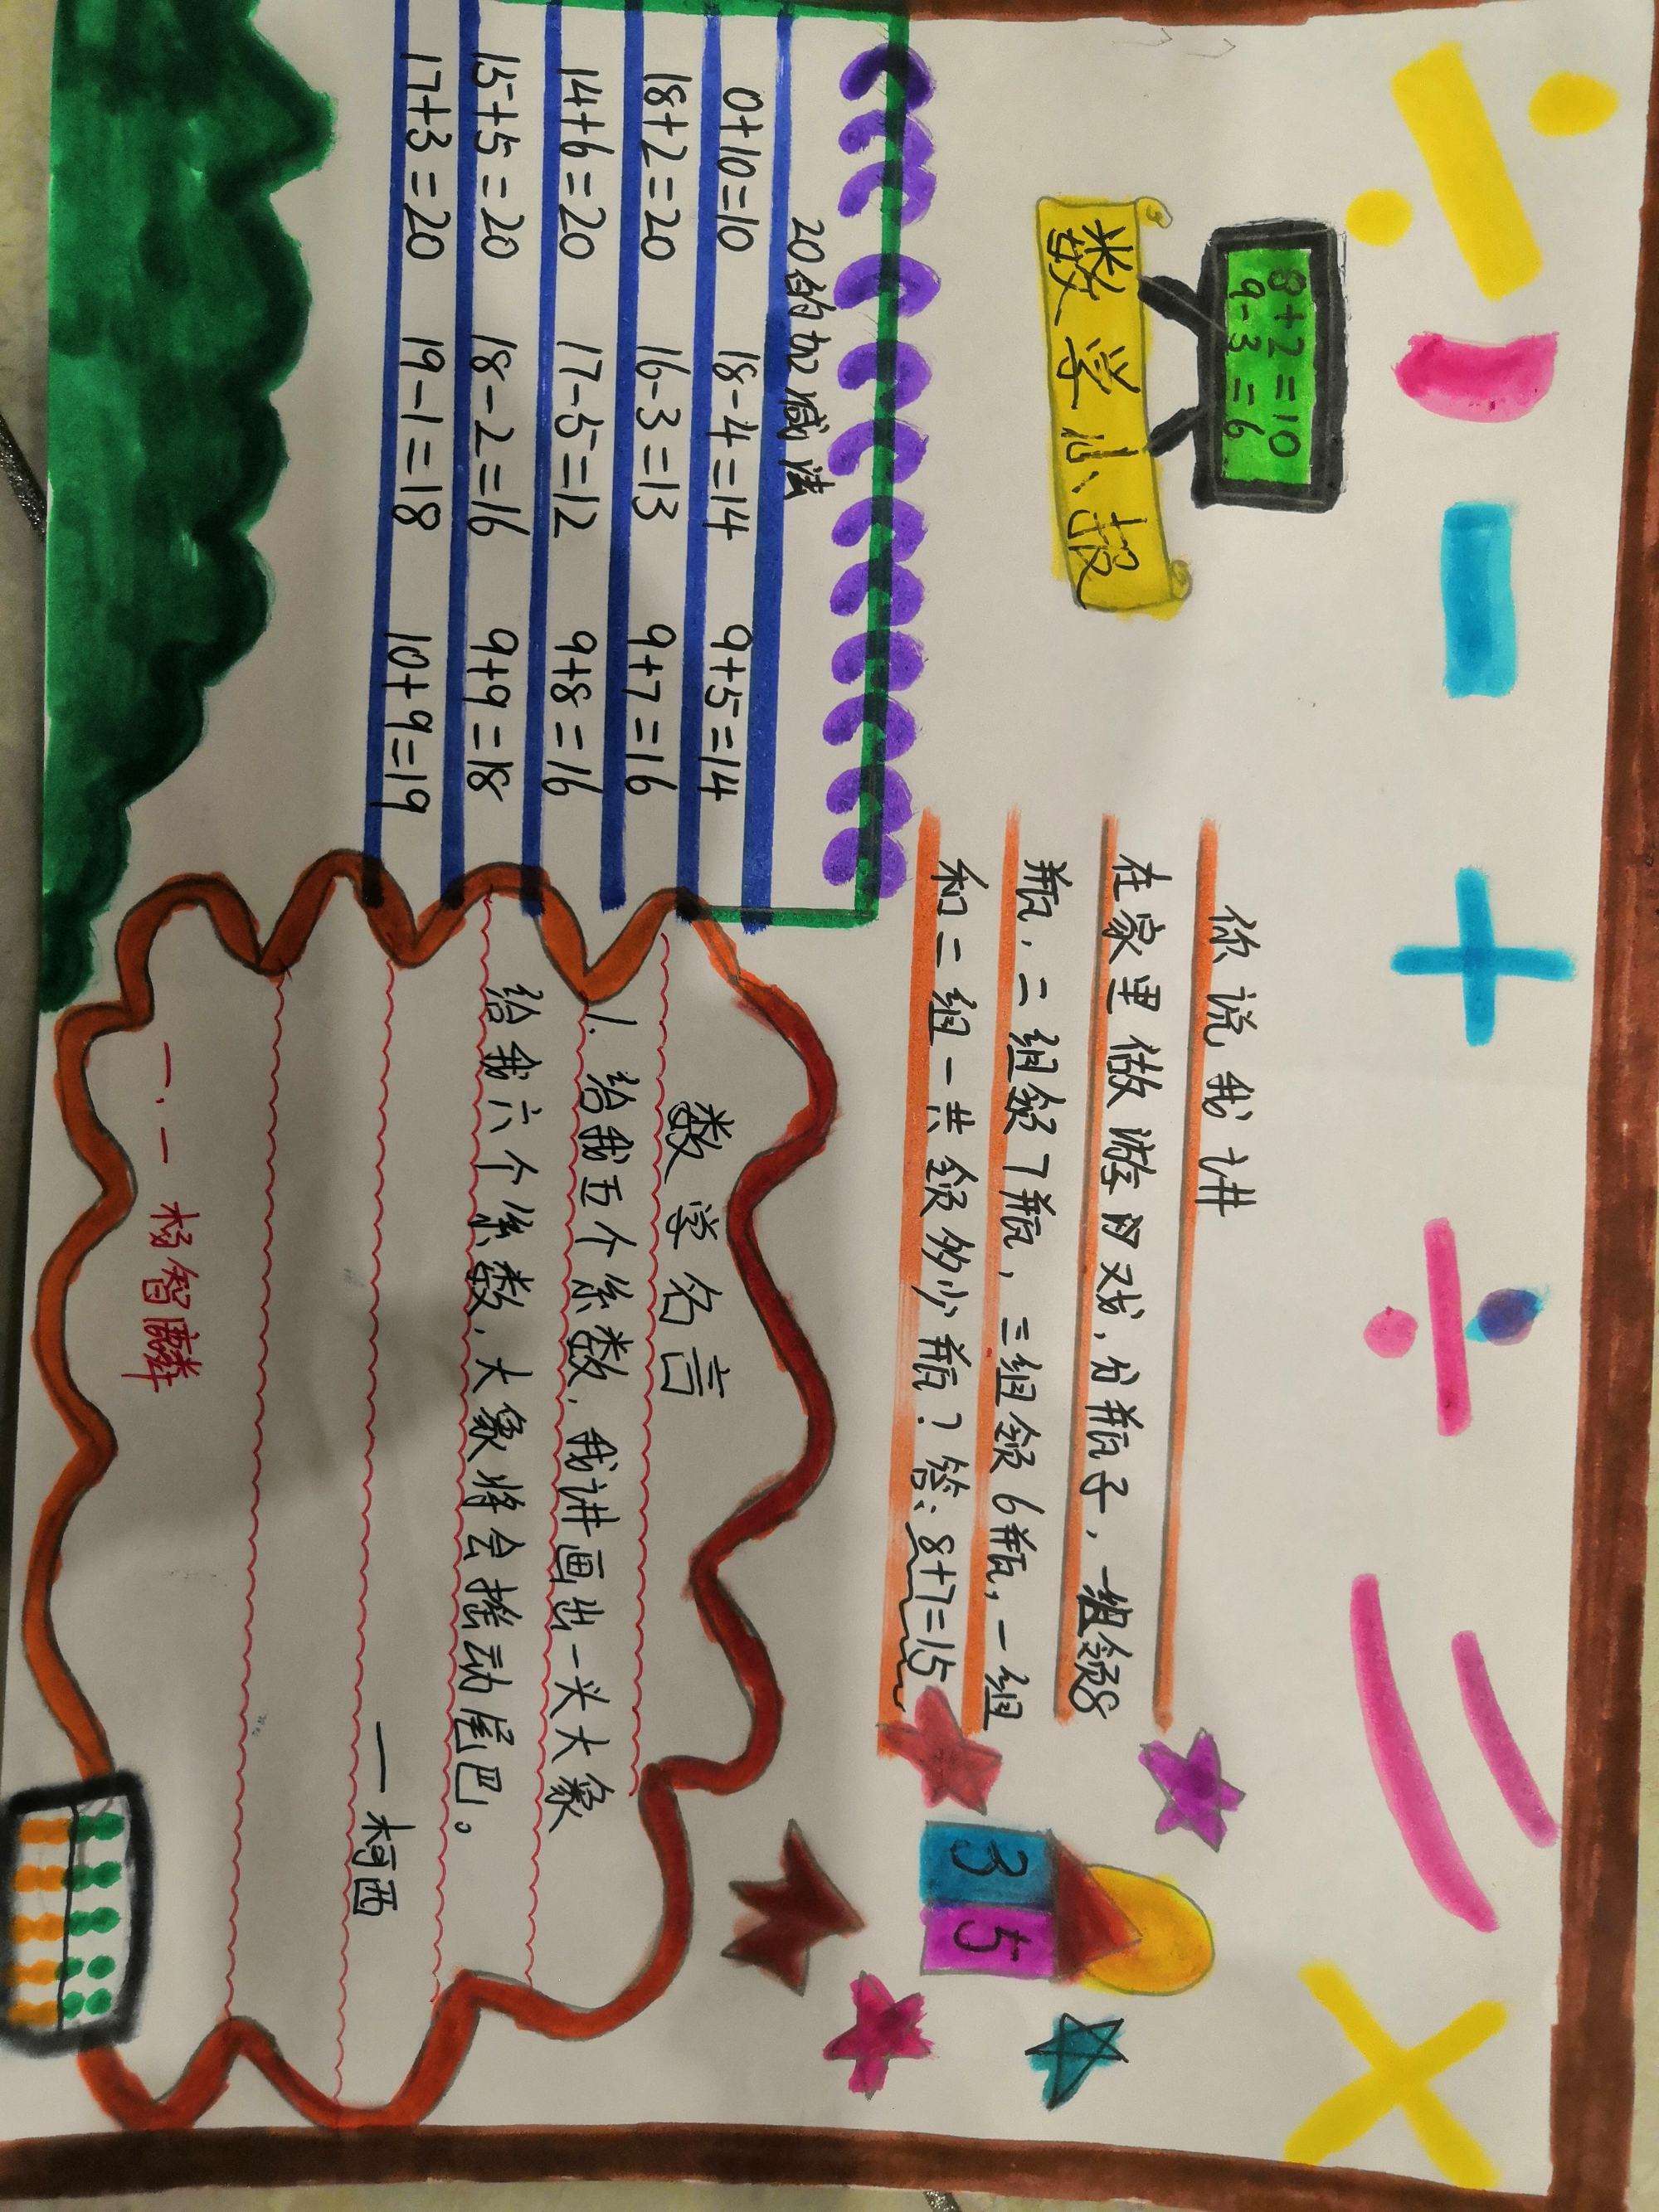 8+2=10
9-3=6
数学小报
你说我讲
在家里做游戏,分瓶子,一组领8
瓶,二组领7瓶,三组领6瓶,一组
和二组一共领多少瓶?答:8+7=15
3 5
20的加减法
0+10=10 18-4=14 9+5=14
18+2=20 16-3=13 9+7=16
14+6=20 17-5=12 9+8=16
15+5=20 18-2=16 9+9=18
17+3=20 19-1=18 10+9=19
数学名言
1. 给我五个系数,我讲画出一头大象
给我六个系数,大象将会摇动尾巴。
—柯西
一、一 杨智麟